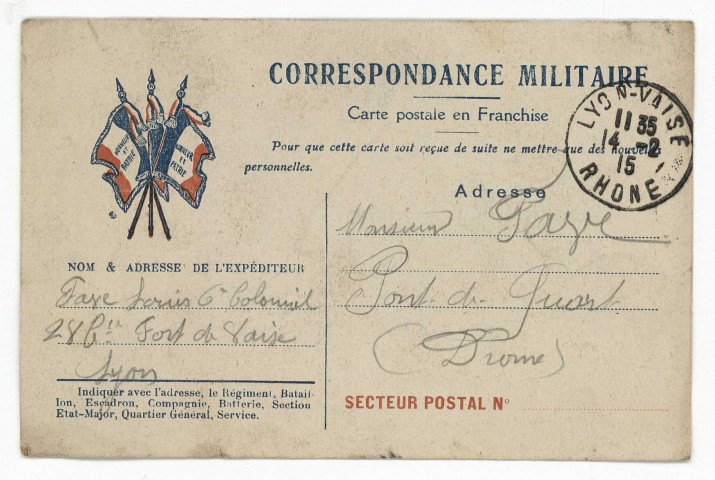 CORRESPONDANCE MILITAIRE
Carte postale en Franchise
Pour que cette carte soit reçue de suite ne mettre que des nouvelles
personnelles.
LYON-VAISE
11 35
14 -2
15
RHONE
HONNEUR ET PATRIE
HONNEUR ET PATRIE
Adresse
Monsieur Faye
Pont-de-Quart
(Drome)
SECTEUR POSTAL N°
NOM & ADRESSE DE L'EXPÉDITEUR
Faye Louis 6e Colonial
28 Cie Fort de Vaise
Lyon
Indiquer avec l'adresse, le Régiment, Batail-
lon, Escadron, Compagnie, Batterie, Section
Etat-Major, Quartier Général, Service.